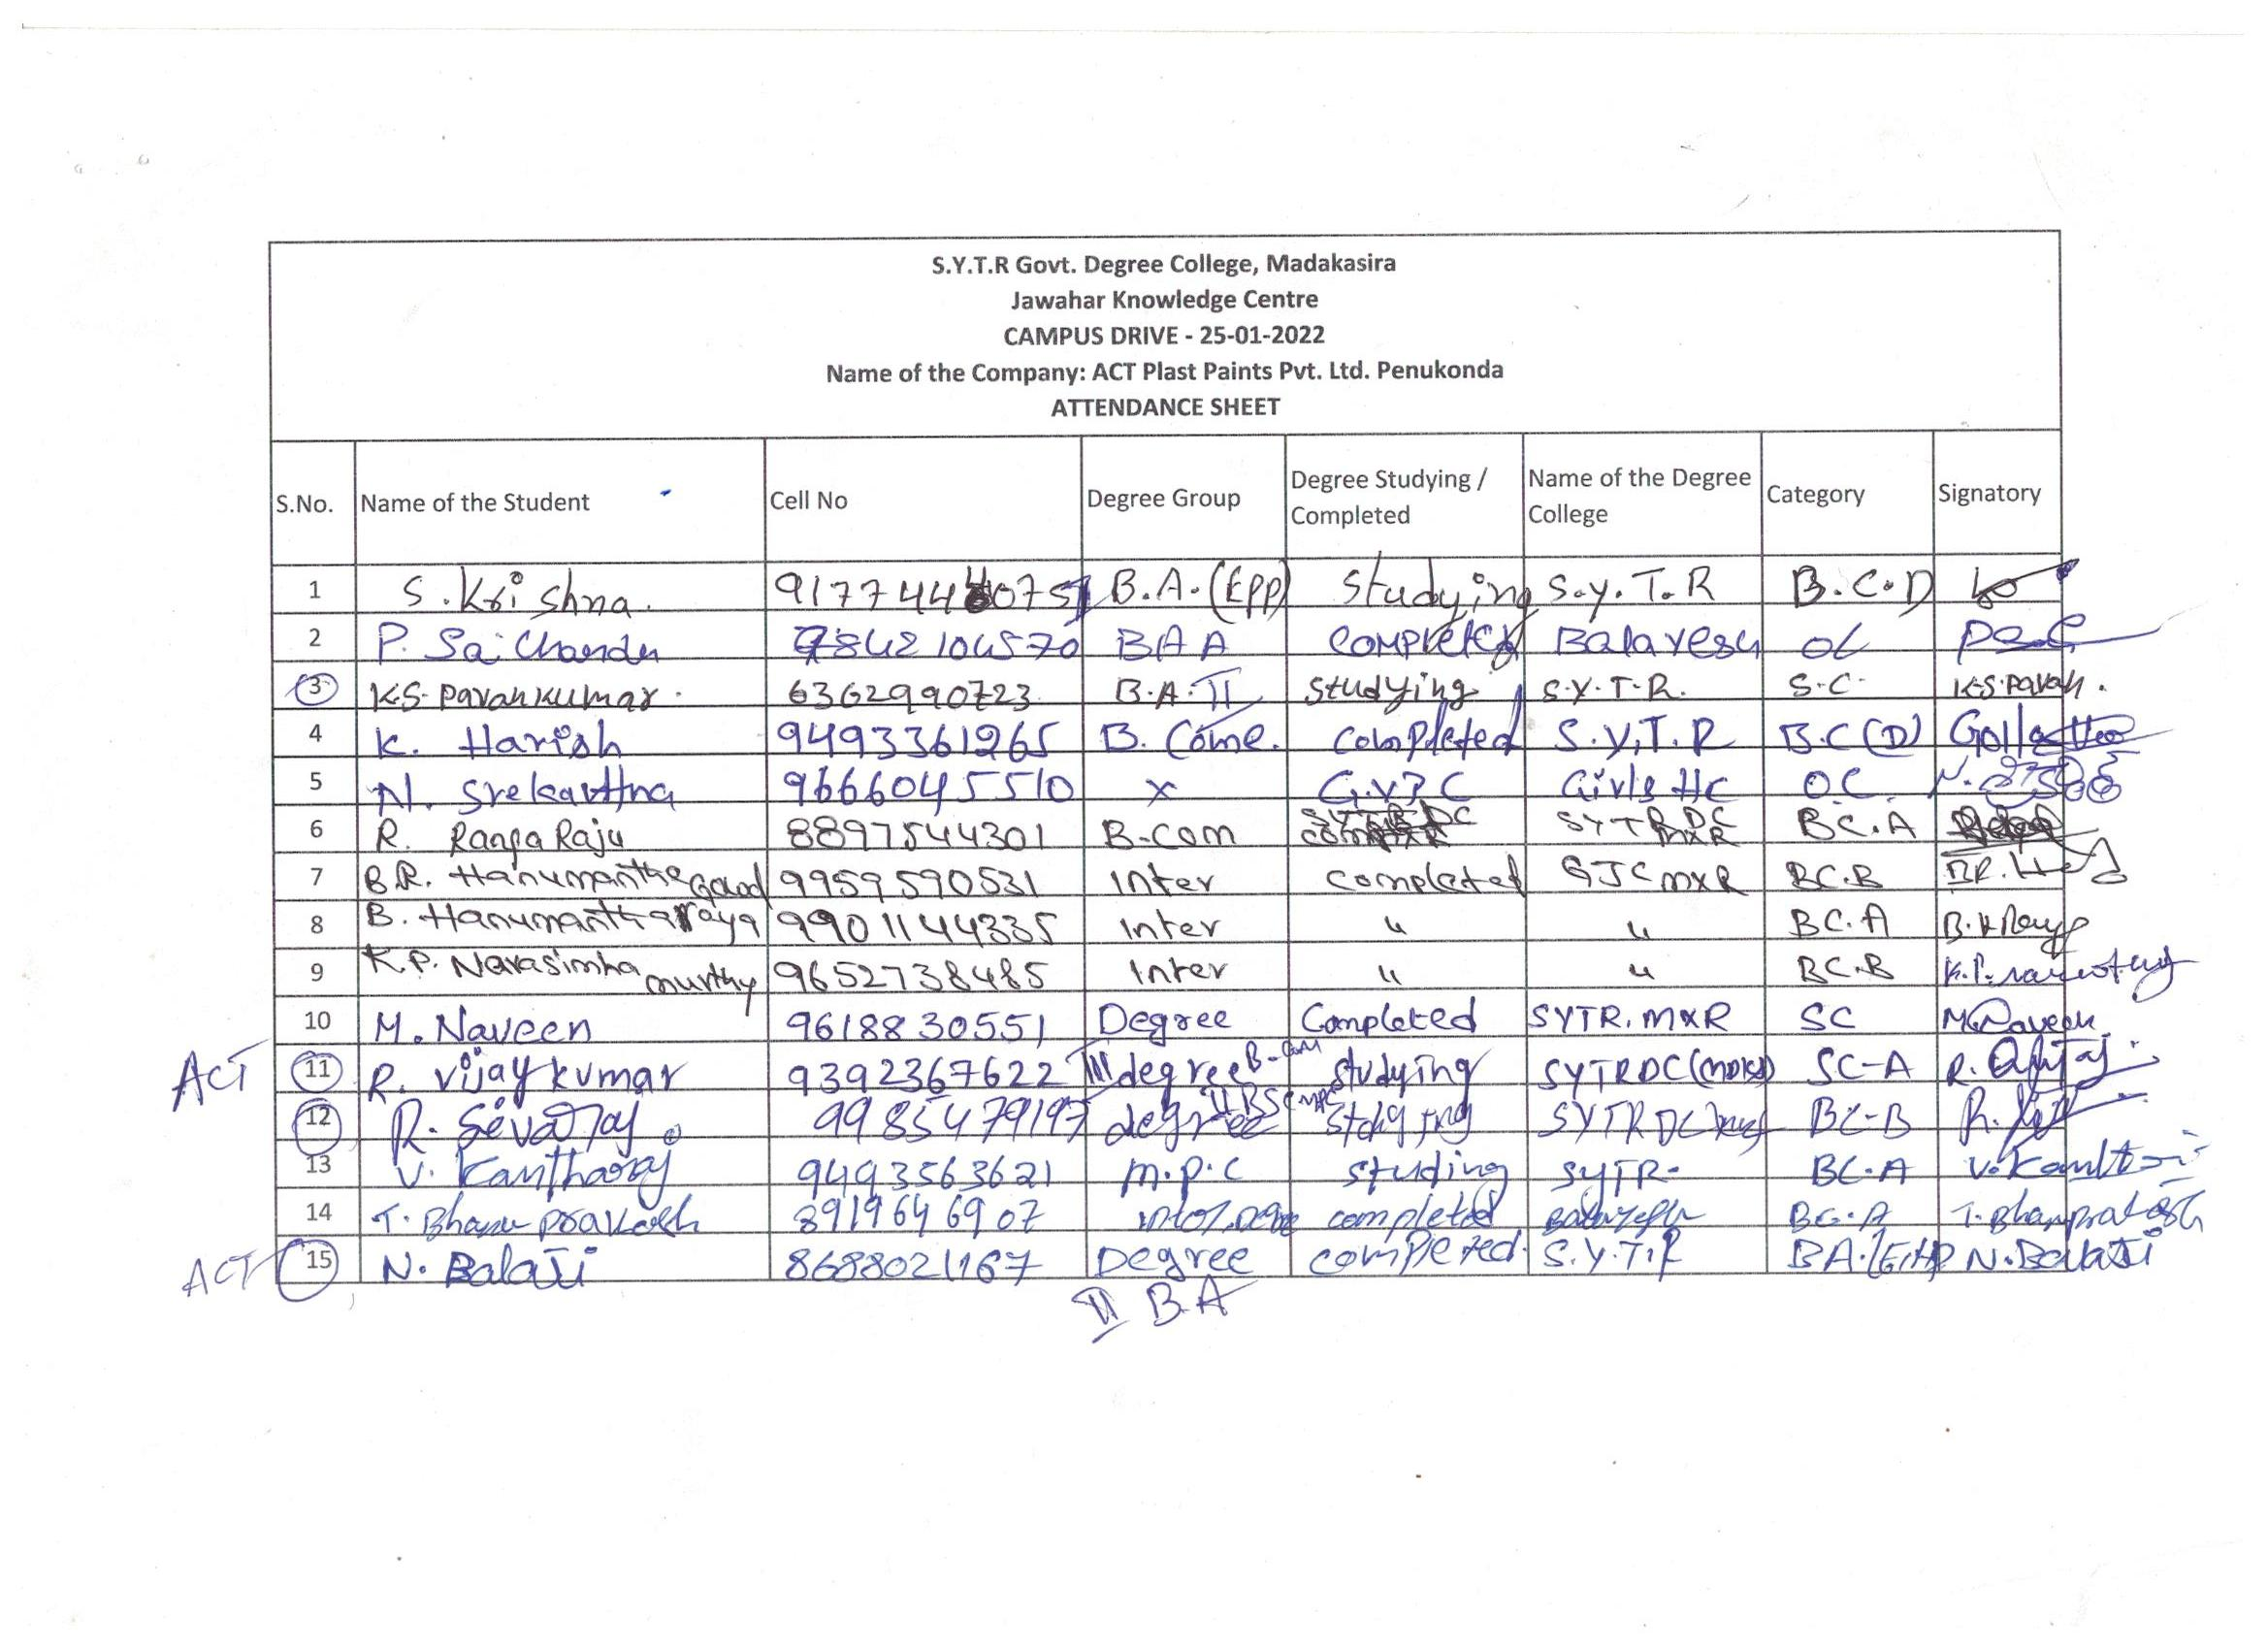 S.Y.T.R Govt. Degree College, Madakasira
Jawahar Knowledge Centre
CAMPUS DRIVE - 25-01-2022
Name of the Company: ACT Plast Paints Pvt. Ltd. Penukonda
ATTENDANCE SHEET
S.No. Name of the Student Cell No Degree Group Degree Studying / Completed Name of the Degree College Category Signatory
1 S. Krishna. B.A. (Epp) studying S.Y.T.R B.C.D
2 P. Sai Chandu BAA completed Balayesu OC
3 K.S. Pavan Kumar. 6362990723 B.A. II studying S.Y.T.R. S.C. K.S. Pavan.
4 K. Harish 9493361265 B. Come. completed S.Y.T.R B.C (D)
5 N. 9666045510 x Girls HC O.C.
6 R. Ranga Raju 8897544301 B-com SYTR DC MXR BC.A
7 B.R. Hanumantha Goud 9959590531 Inter completed GJC MXR BC.B
8 B. Hanumantharaya 9901144335 Inter " " BC.A
9 K.P. Narasimha murthy 9652738485 Inter " " BC.B
10 M. Naveen 9618830551 Degree Completed SYTR. MXR SC M. Naveen
ACT 11 R. Vijay kumar 9392367622 III degree B-com studying SYTRDC SC-A R.
12 R. Sivaraj 9985479197 degree II BSC MPC SYTRDC BC-B R.
13 V. Kantharaj 9493563621 m.p.c studing SYTR- BC.A V. Kantharaj
14 T. Bhanu prakash 8919646907 completed BC.A T. Bhanprakash
ACT 15 N. Balaji 8688021167 Degree completed. S.Y.T.R BA. N. Balaji
II B.A